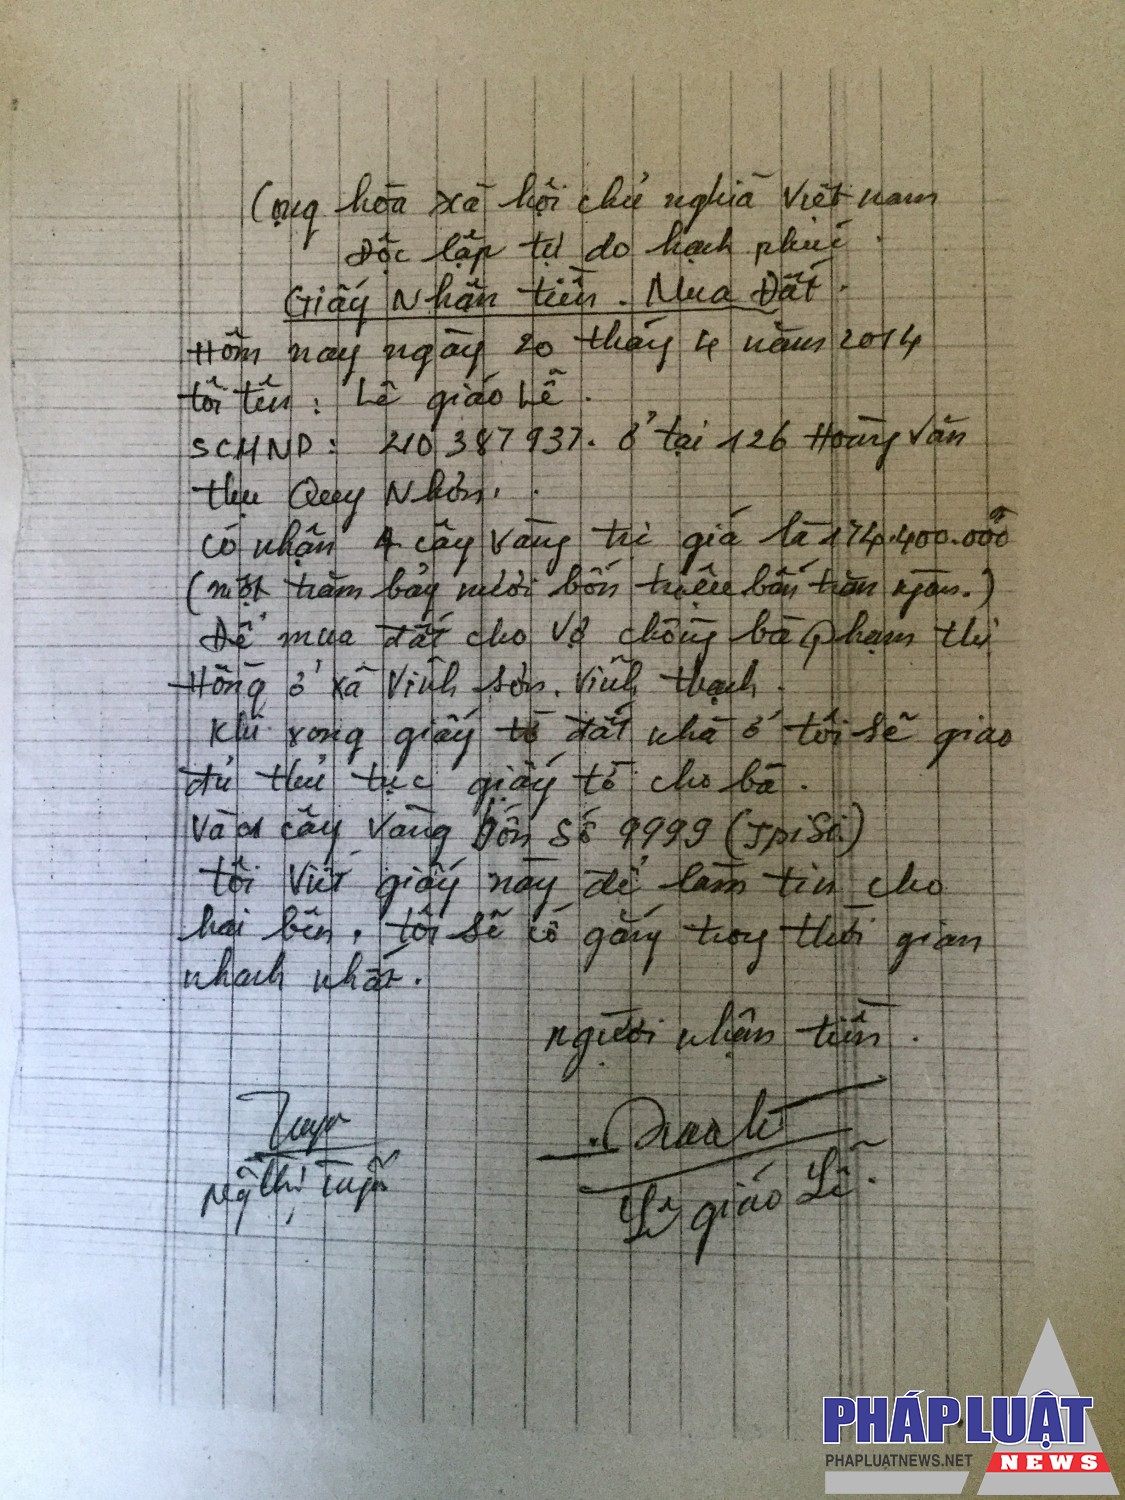 Cộng hòa xã hội chủ nghĩa Việt nam
Độc lập tự do hạnh phúc.
Giấy Nhận tiền. Mua Đất.
Hôm nay ngày 20 tháng 4 năm 2014
tôi tên: Lê giáo Lễ.
SCMND: 210387937. ở tại 126 Hoàng Văn
thụ Quy Nhơn.
có nhận 4 cây vàng trị giá là 174.400.000đ
(một trăm bảy mươi bốn triệu bốn trăm ngàn.)
Để mua đất cho vợ chồng bà phạm thị
Hồng ở xã Vĩnh Sơn. Vĩnh thạnh.
Khi xong giấy tờ đất nhà ở tôi sẽ giao
đủ thủ tục giấy tờ cho bà.
Và cây vàng bốn số 9999
tôi viết giấy này để làm tin cho
hai bên. tôi sẽ cố gắng trong thời gian
nhanh nhất.
người nhận tiền.
Lê giáo Lễ.
PHÁP LUẬT
NEWS
PHAPLUATNEWS.NET